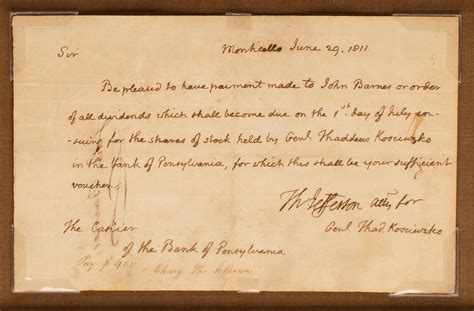 Monticello June 29. 1811.
Sir
Be pleased to have paiment made to John Barnes or order
of all dividends which shall become due on the 1st. day of July en-
-suing for the shares of stock held by Genl. Thaddeus Kosciuzko
in the Bank of Pensylvania, for which this shall be your sufficient
voucher.
Th Jefferson atty for
Genl Thad. Kosciuzko
The Cashier
of the Bank of Pensylvania
Pay $ 460
Charge Tho Jefferson